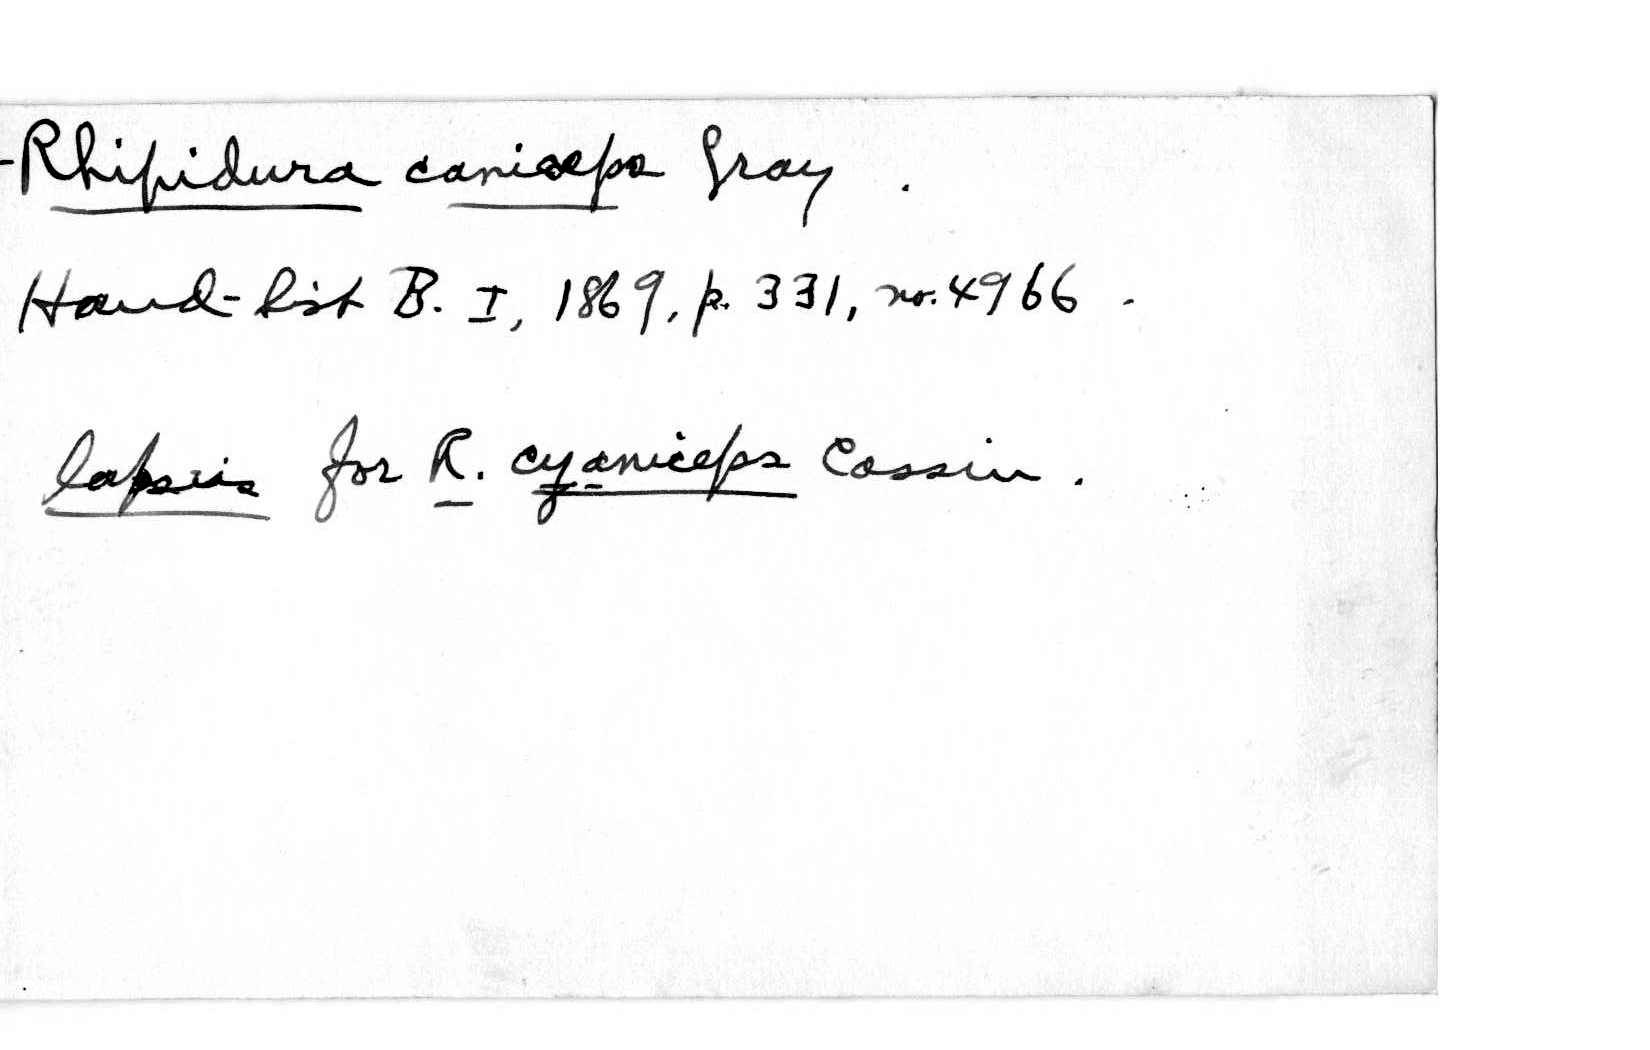 -Rhipidura caniceps Gray .
Hand-list B. I, 1869, p. 331, no. 4966 .
lapsus for R. cyaniceps Cassin .